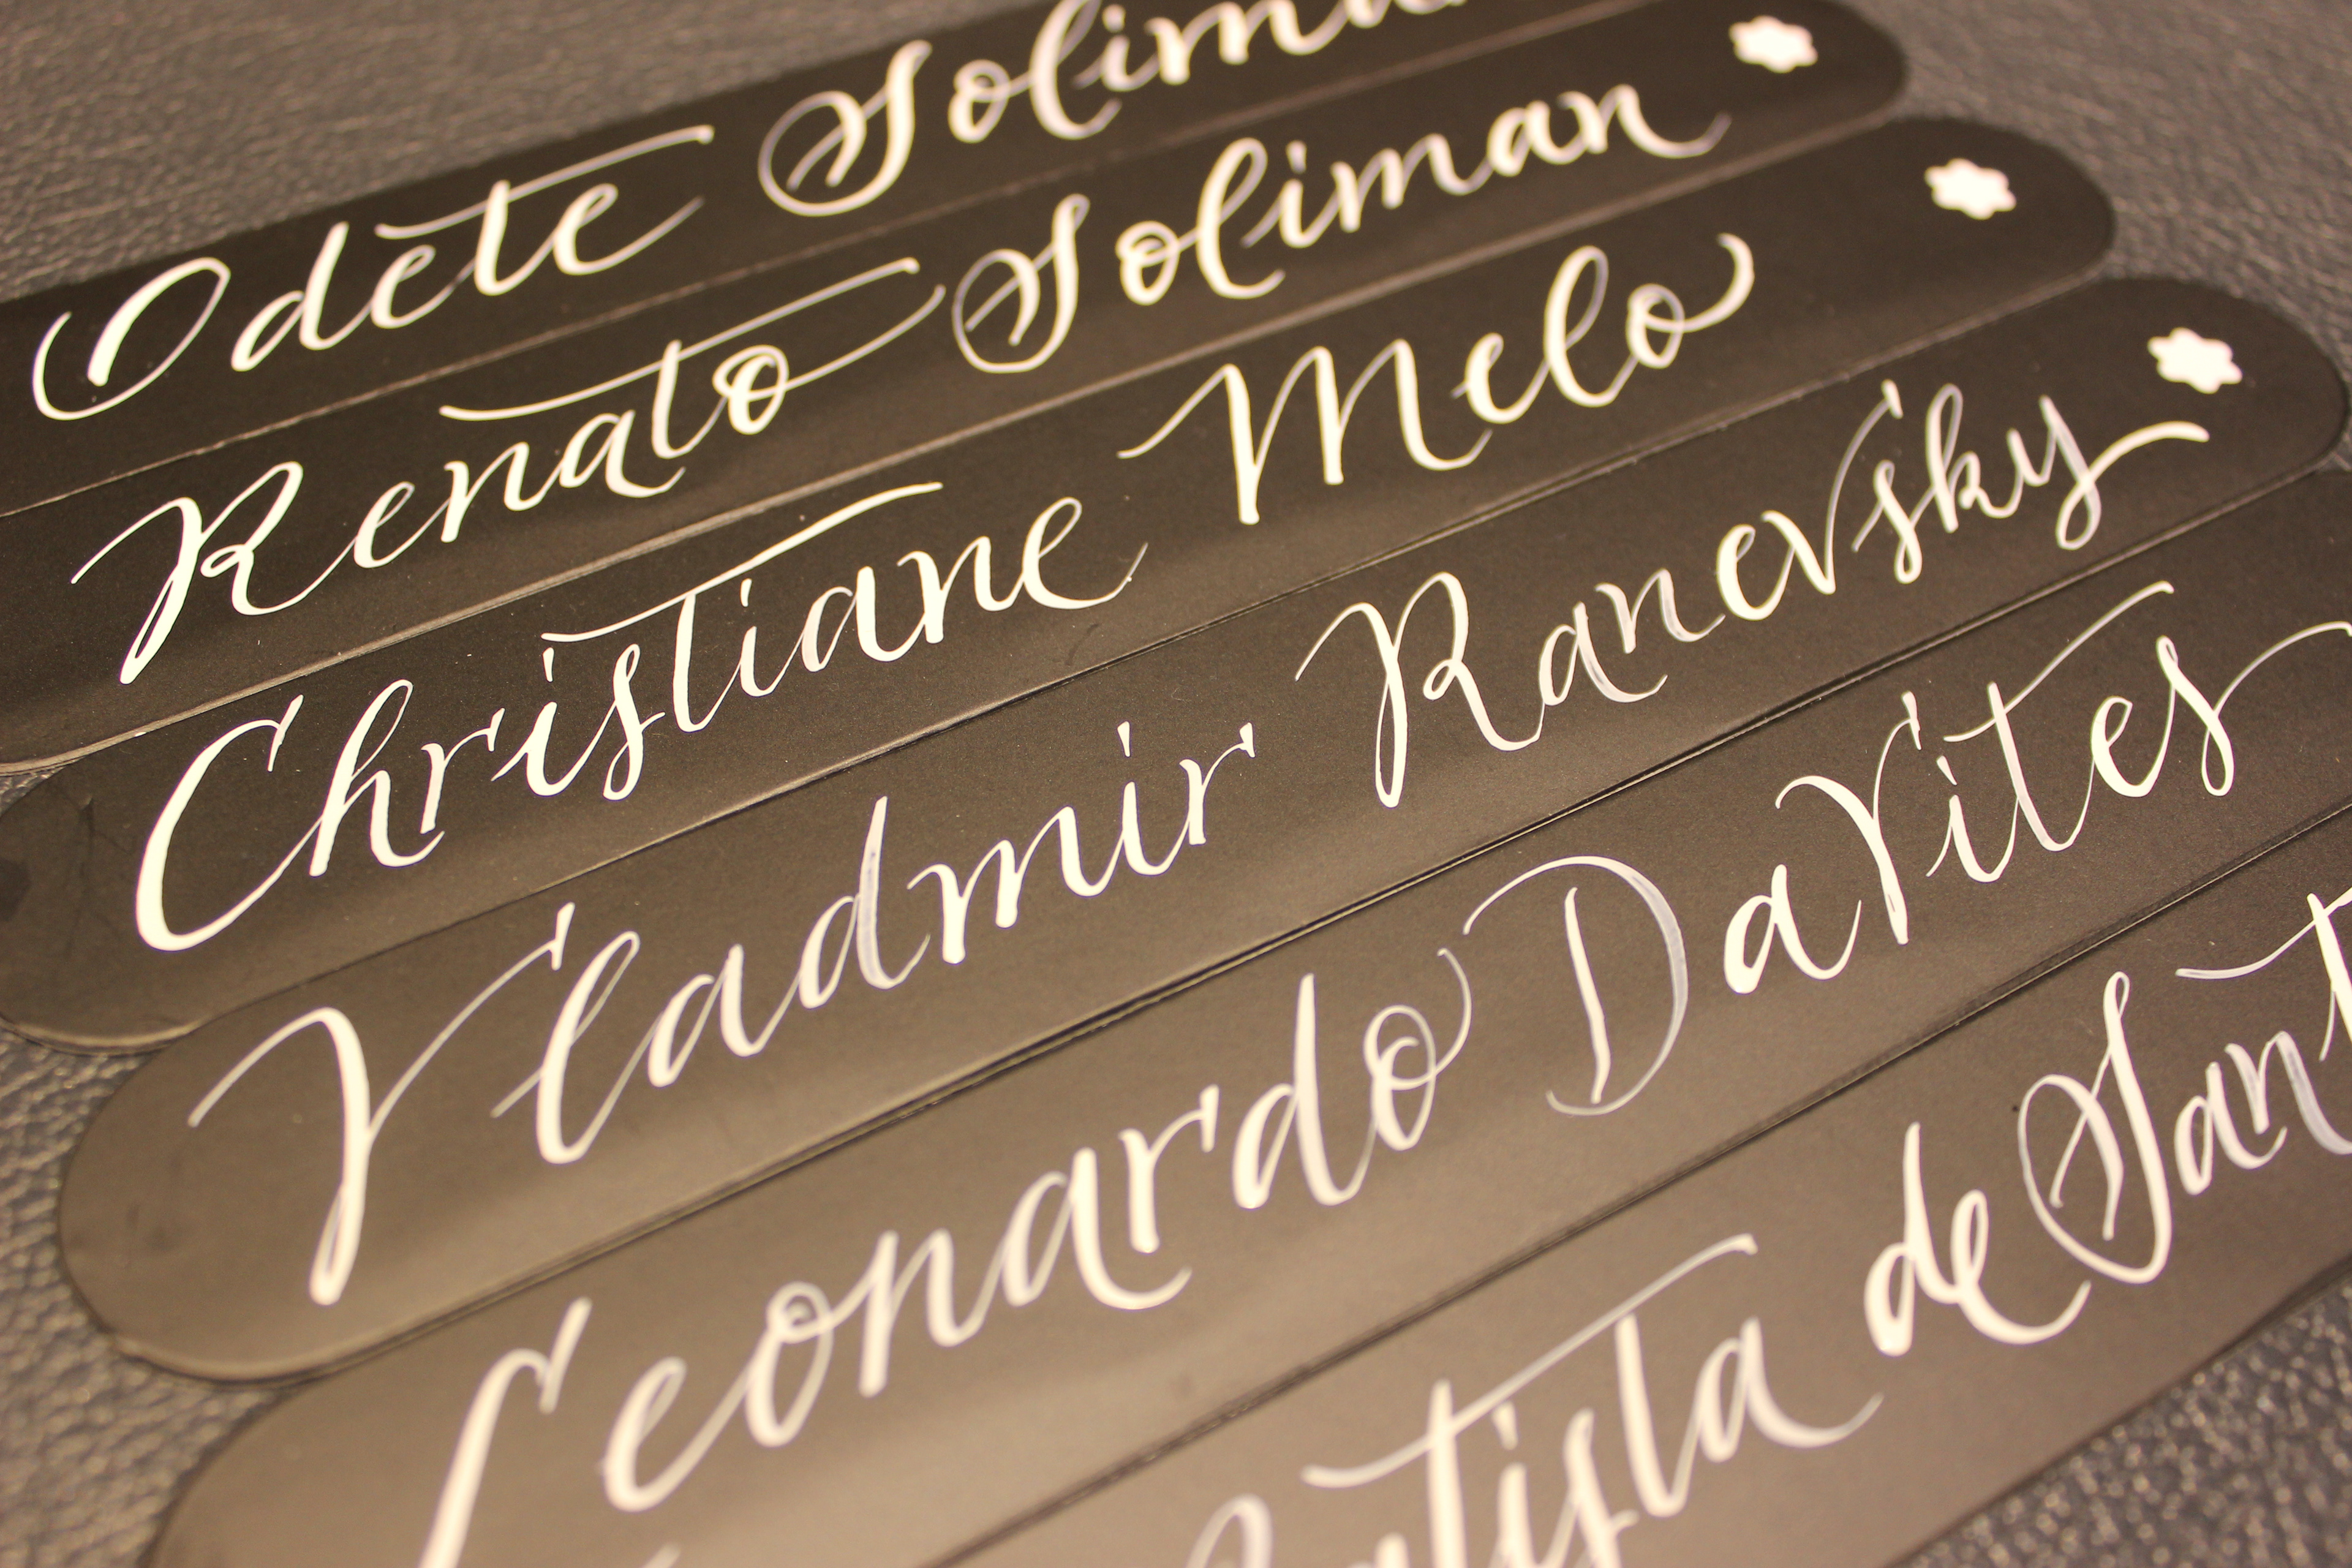 Odete Soliman
Renato Soliman
Christiane Melo
Vladmir Ranevsky
Leonardo DaVites
de